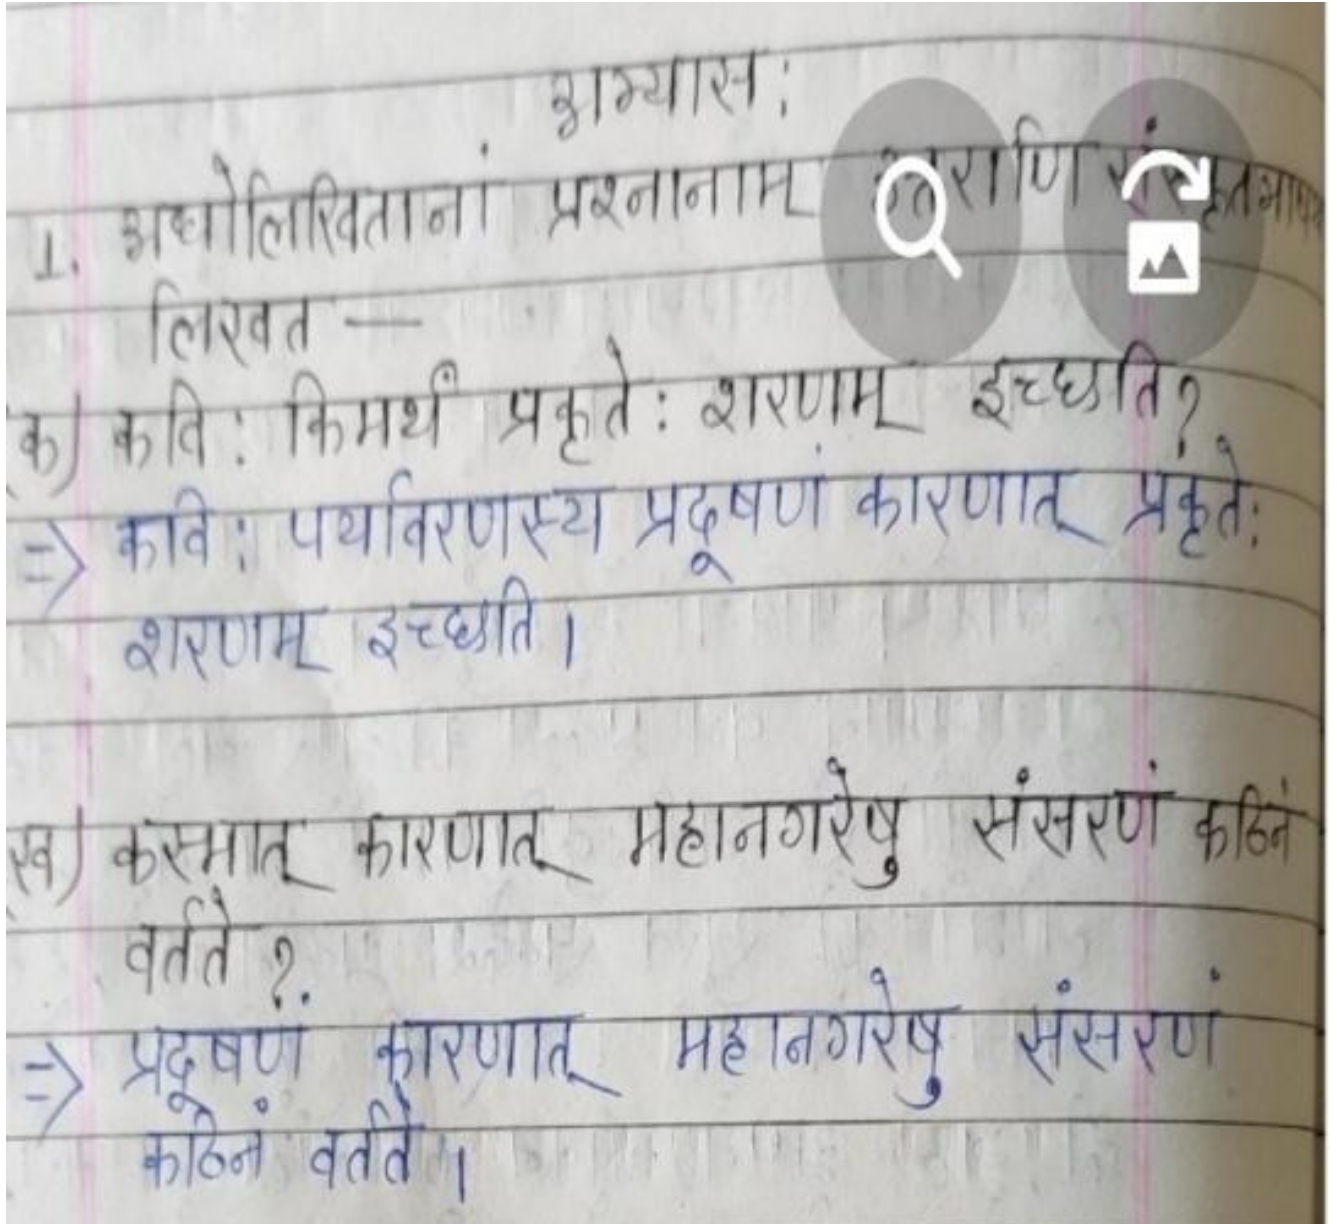 अभ्यास:
1. अधोलिखितानां प्रश्नानाम् उत्तराणि संस्कृतभाषया
लिखत —
क) कवि: किमर्थं प्रकृते: शरणम् इच्छति?
=> कवि: पर्यावरणस्य प्रदूषणं कारणात् प्रकृते:
शरणम् इच्छति।
ख) कस्मात् कारणात् महानगरेषु संसरणं कठिनं
वर्तते?
=> प्रदूषणं कारणात् महानगरेषु संसरणं
कठिनं वर्तते।